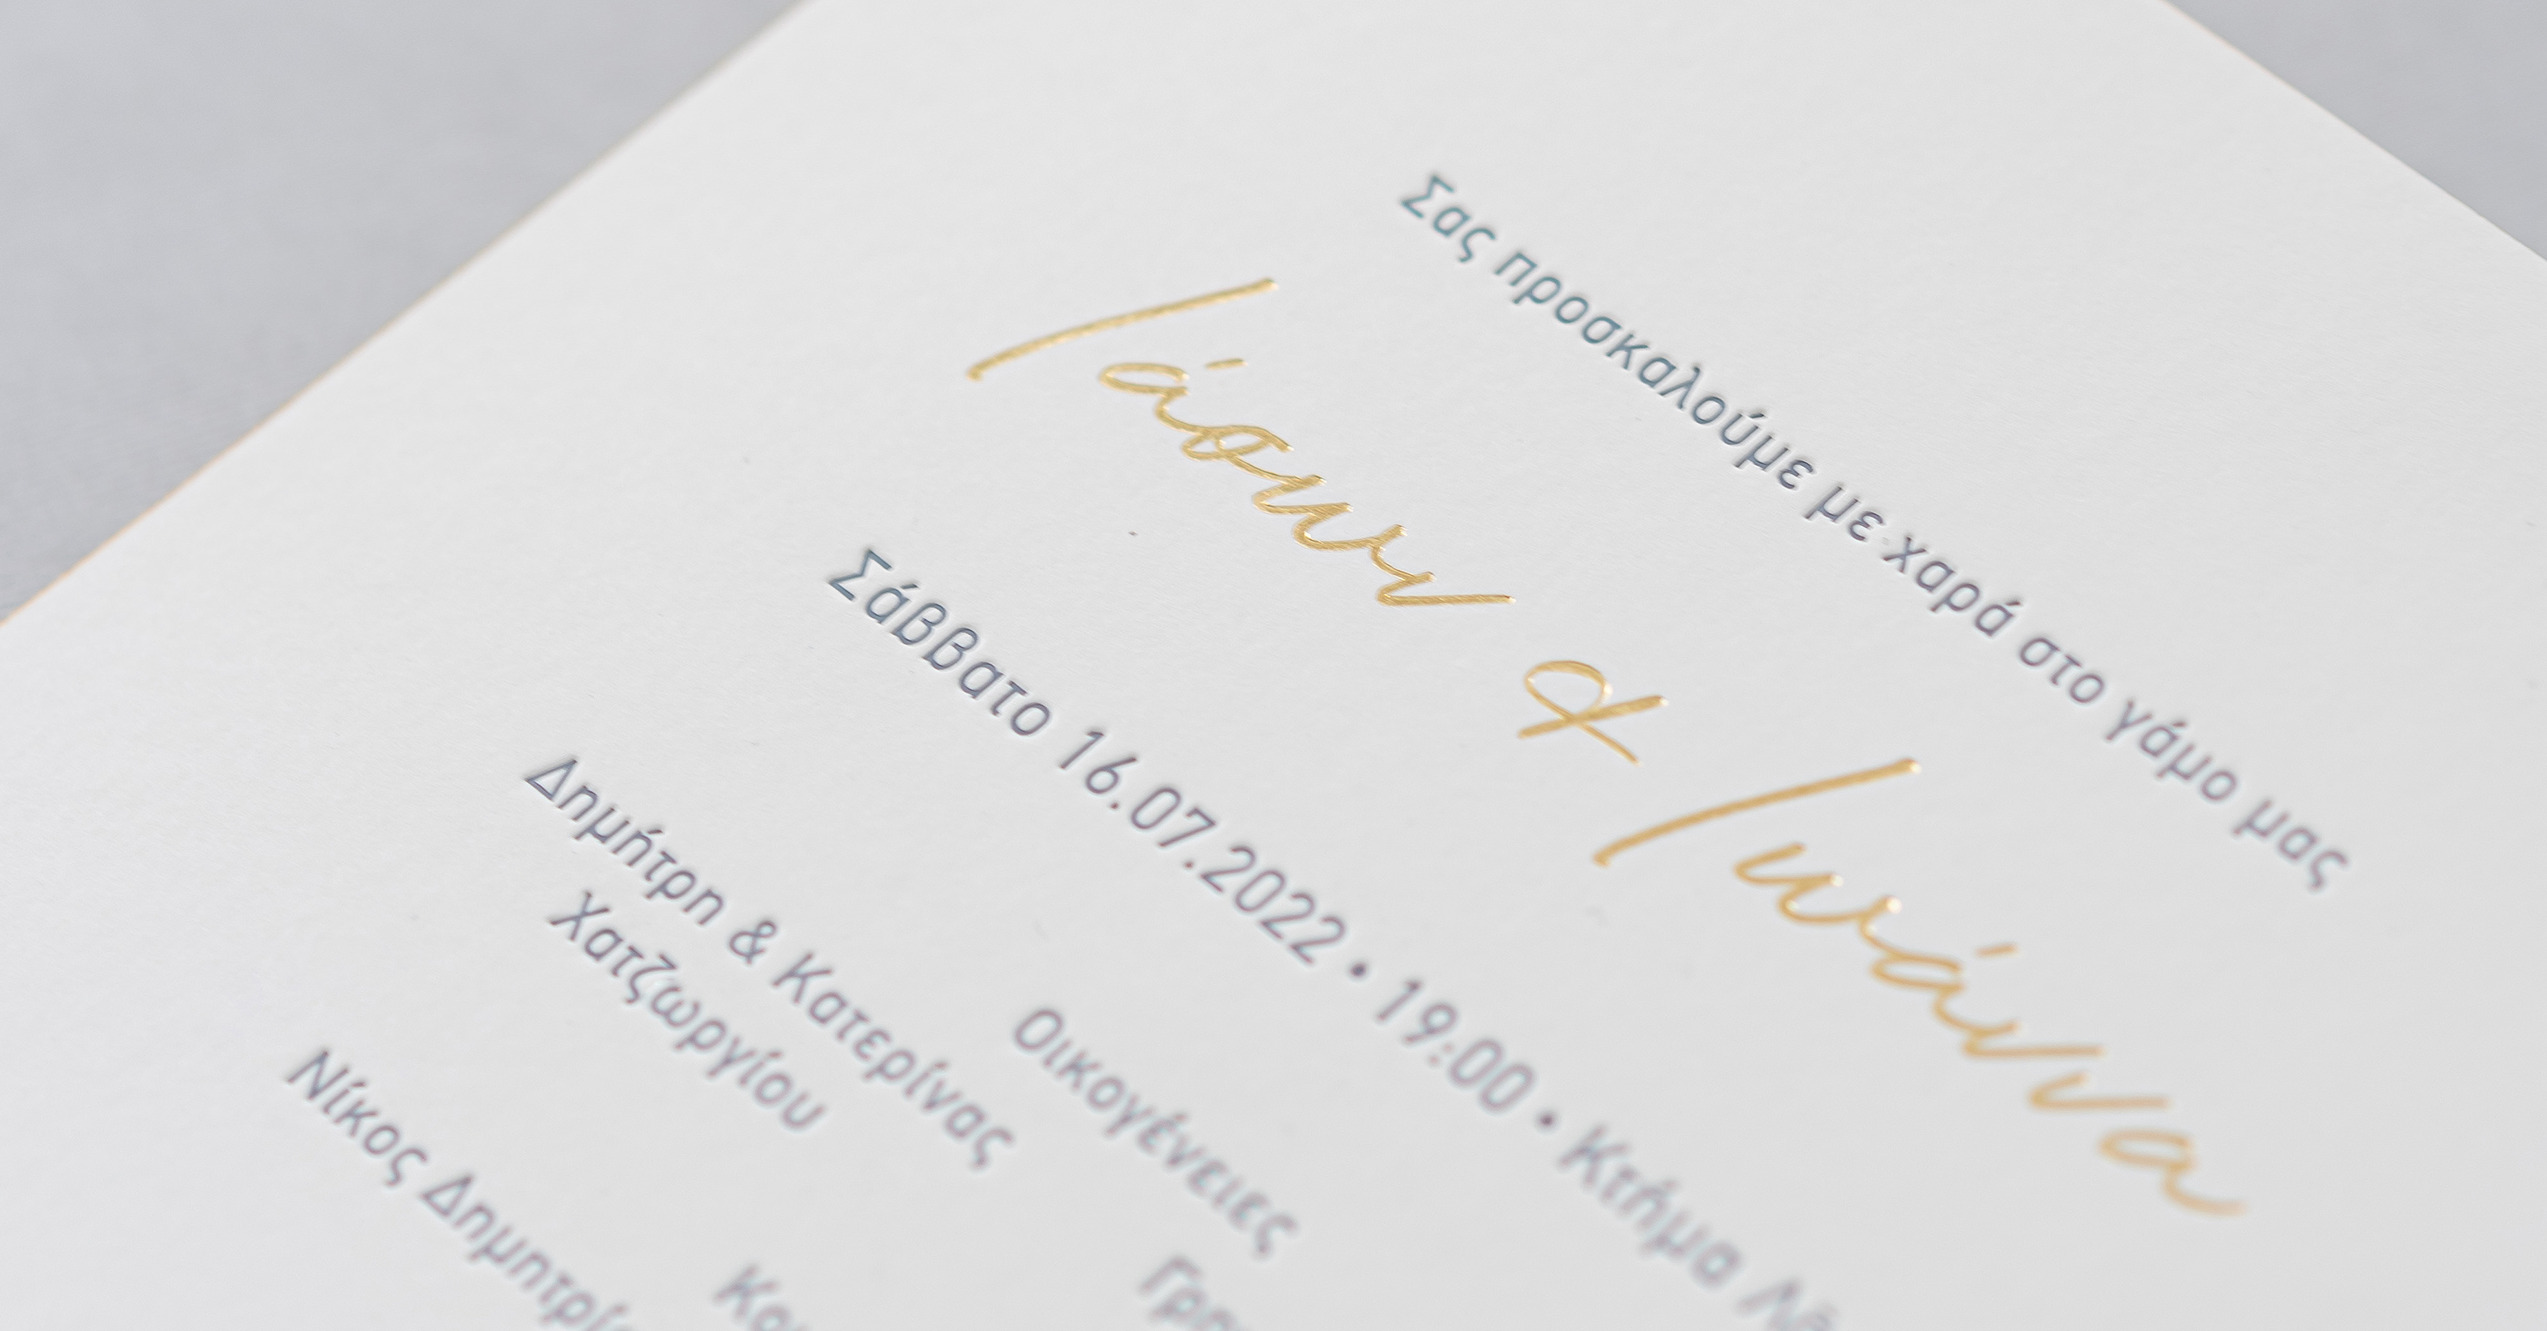 Σας προσκαλούμε με χαρά στο γάμο μας
Ιάσων & Ιωάννα
Σάββατο 16.07.2022 • 19:00 • Κτήμα
Οικογένειες
Δημήτρη & Κατερίνας
Χατζωργίου
Νίκος